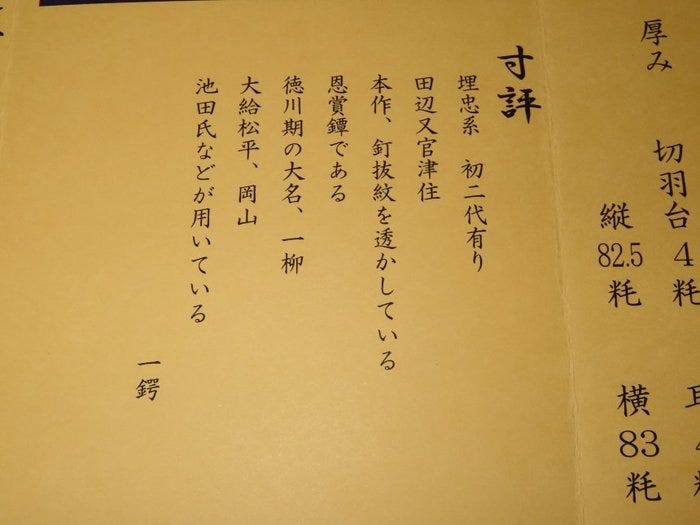 厚み
切羽台 4 粍
縦 82.5 粍
横 83 粍
寸評
埋忠系 初二代有り
田辺又官津住
本作、釘抜紋を透かしている
恩賞鐔である
徳川期の大名、一柳
大給松平、岡山
池田氏などが用いている
一鍔